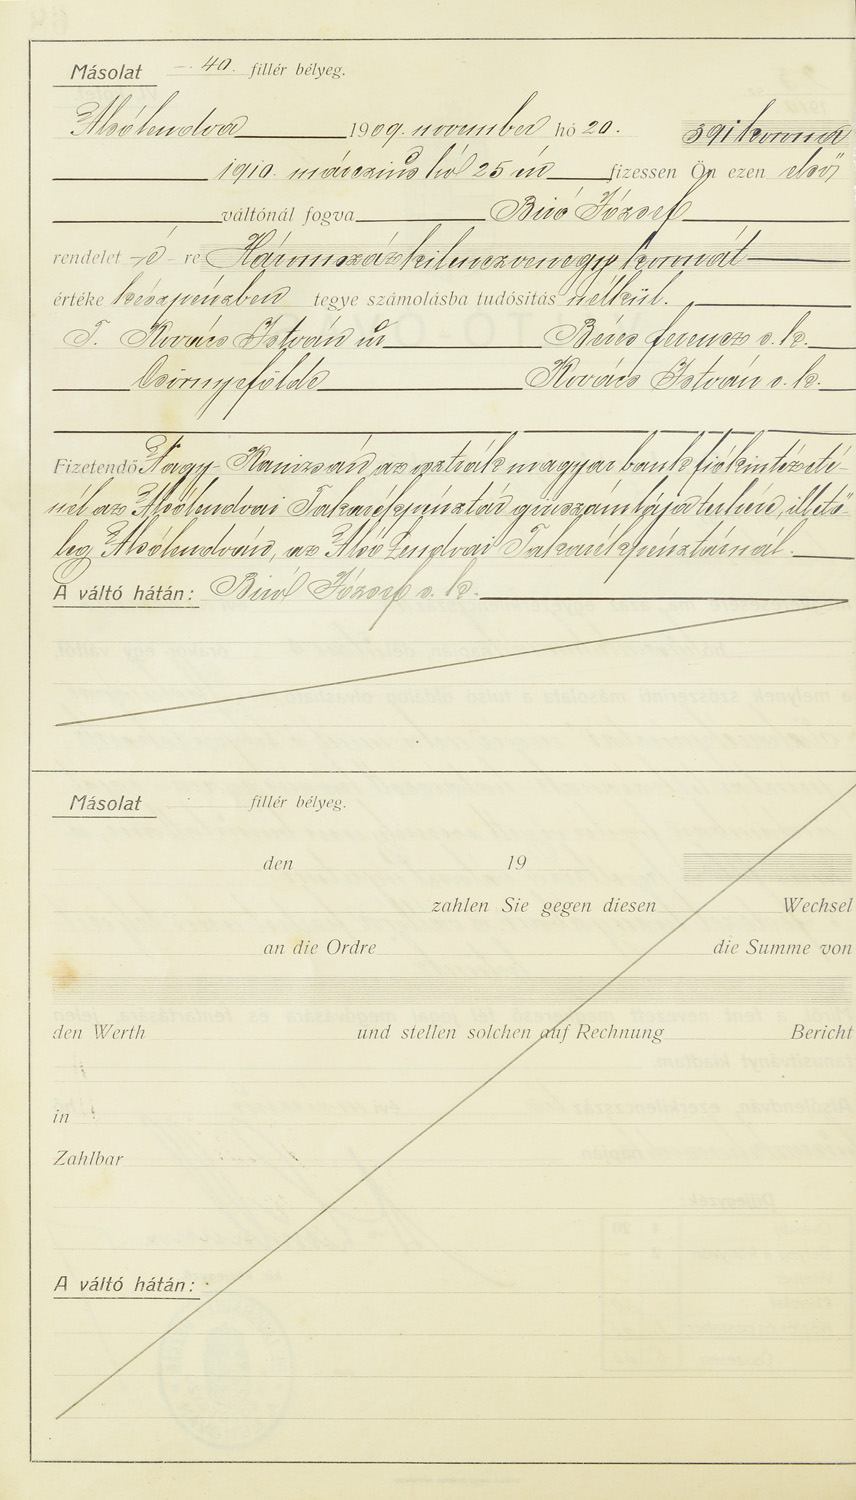 Másolat 40. fillér bélyeg.
Alsólendva 1909. november hó 20. 391 korona
1910. márczius hó 25 én fizessen Ön ezen első
váltónál fogva Biró József
rendelet -é- re Háromszázkilenczvenegy koronát
értéke készpénzben tegye számolásba tudósitás nélkül.
T. Kovács István úr Béres ferencz s. k.
Csörnyeföldе Kovács István s. k.
Fizetendő Nagy-Kanizsán az osztrák magyar bank fiókintézeté-
nél az Alsólendvai Takarékpénztár giroszámlája terhére, illető-
leg Alsólendván, az Alsó Lendvai Takarékpénztárnál.
A váltó hátán: Biró József s. k.
Másolat fillér bélyeg.
den 19
zahlen Sie gegen diesen Wechsel
an die Ordre die Summe von
den Werth und stellen solchen auf Rechnung Bericht
in
Zahlbar
A váltó hátán: